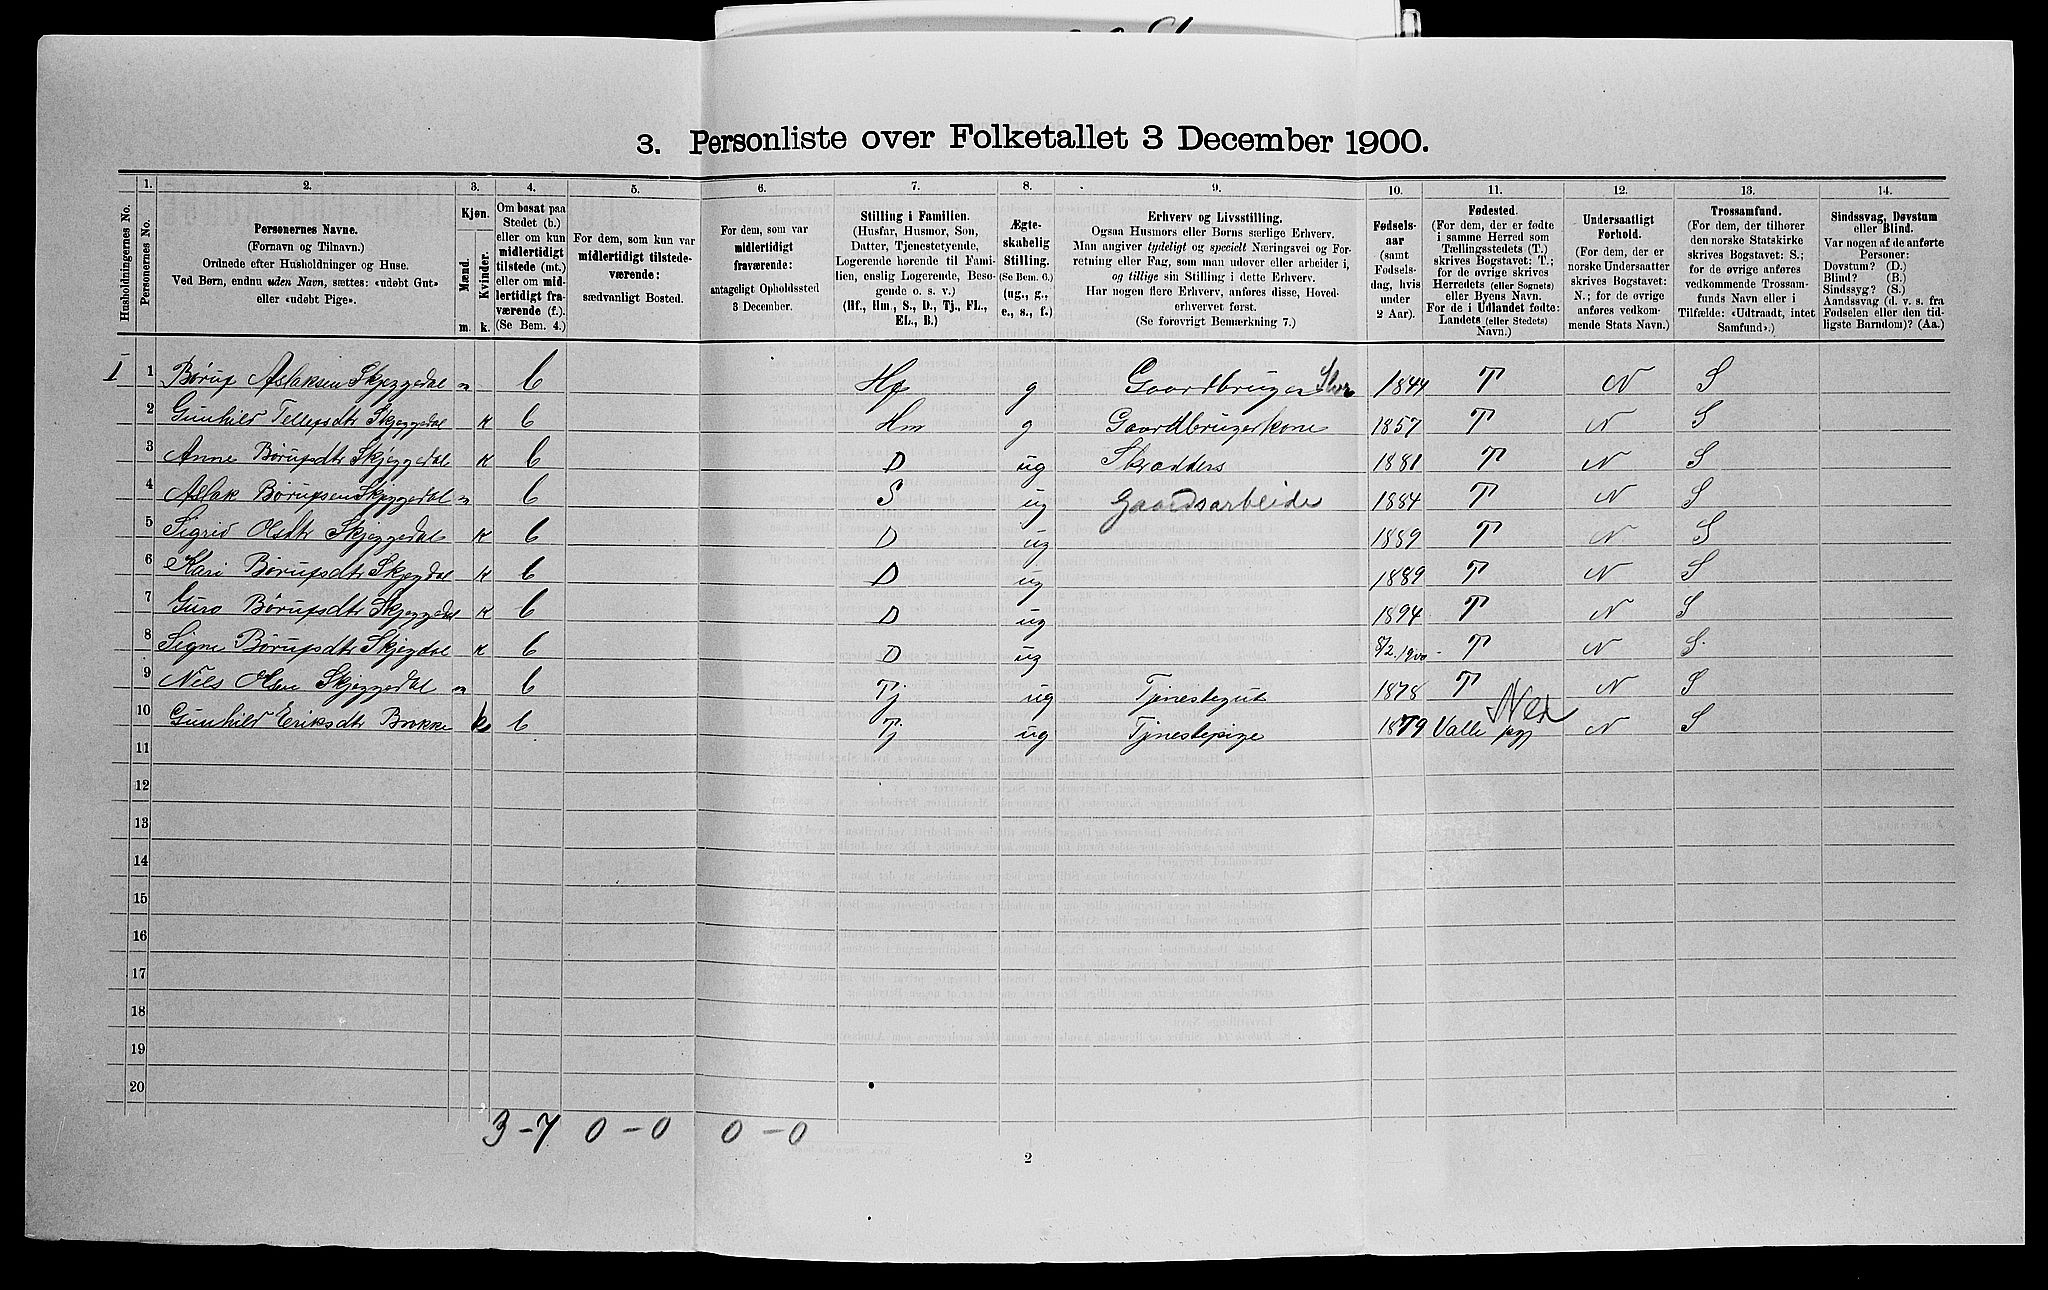 3. Personliste over Folketallet 3 December 1900.
1. 2. 3. 4. 5. 6. 7. 8. 9. 10. 11. 12. 13. 14.
Husholdningernes No.
Personernes No.
Personernes Navne.
(Fornavn og Tilnavn.)
Ordnede efter Husholdninger og Huse.
Ved Børn, endnu uden Navn, sættes: «udøbt Gut»
eller «udøbt Pige».
Kjøn.
Mænd.
Kvinder.
m. k.
Om bosat paa
Stedet (b.)
eller om kun
midlertidigt
tilstede (mt.)
eller om mid-
lertidigt fra-
værende (f.).
(Se Bem. 4.)
For dem, som kun var
midlertidigt tilstede-
værende:
sædvanligt Bosted.
For dem, som var
midlertidigt
fraværende:
antageligt Opholdssted
3 December.
Stilling i Familien.
(Husfar, Husmor, Søn,
Datter, Tjenestetyende,
Logerende hørende til Fami-
lien, enslig Logerende, Besø-
gende o. s. v.)
(Hf., Hm., S., D., Tj., FL.,
EL., B.)
Ægte-
skabelig
Stilling.
(Se Bem. 6.)
(ug., g.,
e., s., f.)
Erhverv og Livsstilling.
Ogsaa Husmors eller Børns særlige Erhverv.
Man angiver tydeligt og specielt Næringsvei og For-
retning eller Fag, som man udøver eller arbeider i,
og tillige sin Stilling i dette Erhverv.
Har nogen flere Erhverv, anføres disse, Hoved-
erhvervet først.
(Se forøvrigt Bemærkning 7.)
Fødsels-
aar
(samt
Fødsels-
dag, hvis
under
2 Aar).
Fødested.
(For dem, der er fødte
i samme Herred som
Tællingsstedets (T.)
skrives Bogstavet: T.;
for de øvrige skrives
Herredets (eller Sognets)
eller Byens Navn.
For de i Udlandet fødte:
Landets (eller Stedets)
Navn.)
Undersaatligt
Forhold.
(For dem, der er
norske Undersaatter
skrives Bogstavet:
N.; for de øvrige
anføres vedkom-
mende Stats Navn.)
Trossamfund.
(For dem, der tilhører
den norske Statskirke
skrives Bogstavet: S.;
for de øvrige anføres
vedkommende Trossam-
funds Navn eller i
Tilfælde: «Udtraadt, intet
Samfund».)
Sindssvag, Døvstum
eller Blind.
Var nogen af de anførte
Personer:
Døvstum? (D.)
Blind? (B.)
Sindssyg? (S.)
Aandssvag (d. v. s. fra
Fødselen eller den tid-
ligste Barndom)? (Aa.)
1 1 Børuf Aslaksen Skjeggedal m b Hf g Gaardbruger 1844 T N S
2 Gunhild Tellefsdtr Skjeggedal k b Hm g Gaardbrugerkone 1857 T N S
3 Anne Børufsdtr Skjeggedal k b D ug Skrædders 1881 T N S
4 Aslak Børufsen Skjeggedal m b S ug Gaardsarbeide 1884 T N S
5 Sigrid Olsdtr Skjeggedal k b D ug 1889 T N S
6 Kari Børufsdtr Skjegdal k b D ug 1889 T N S
7 Guro Børufsdtr Skjeggedal k b D ug 1894 T N S
8 Signe Børufsdtr Skjegdal k b D ug 8/2 1900 T N S.
9 Nils Olsen Skjeggedal m b Tj ug Tjenestegut 1878 T N S
10 Gunhild Eriksdtr Brokke k b Tj ug Tjenestepige 1879 Valle pgj N S
11
12
13
14
15
16
17
18
19
20
3-7 0-0 0-0
2